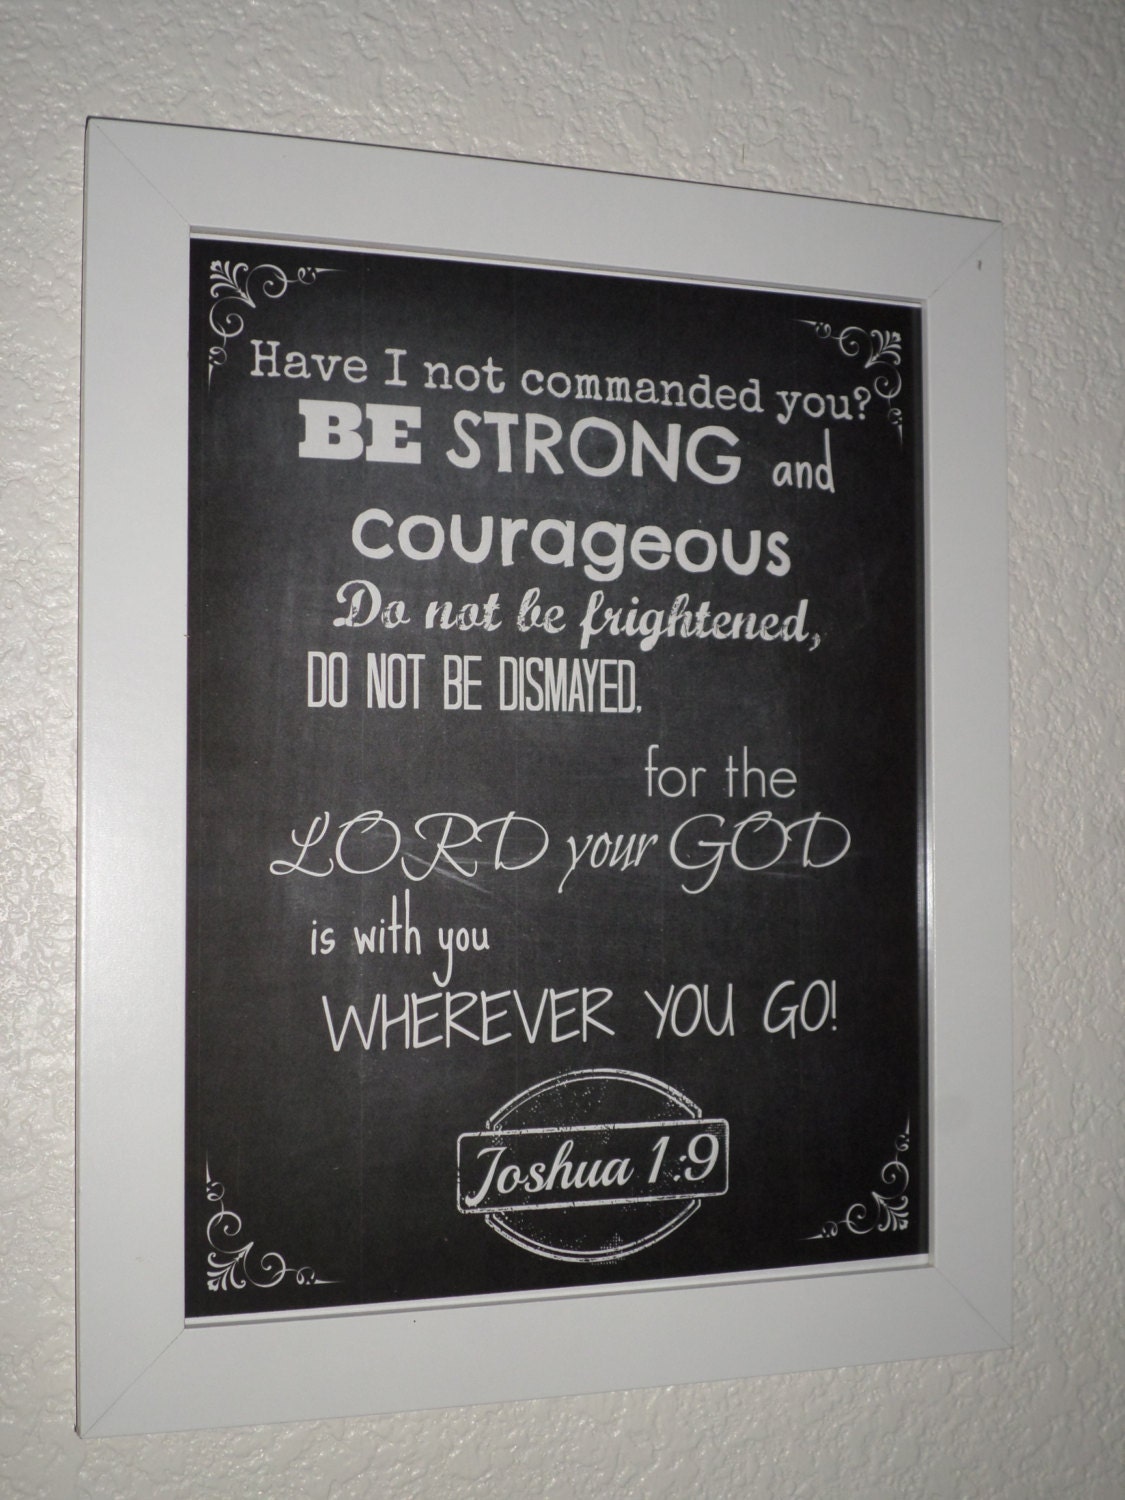 Have I not commanded you?
BE STRONG and
courageous
Do not be frightened,
DO NOT BE DISMAYED,
for the
LORD your GOD
is with you
WHEREVER YOU GO!
Joshua 1:9